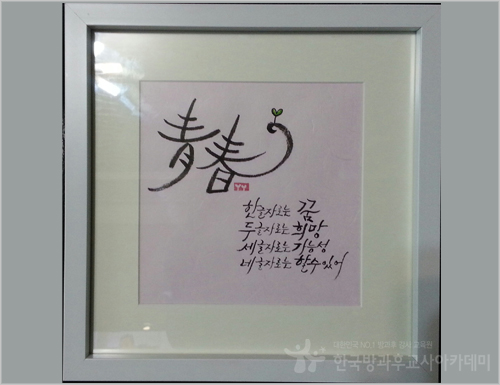 青春
한글자로는 꿈
두글자로는 희망
세글자로는 가능성
네글자로는 할수있어
한국방과후교사아카데미